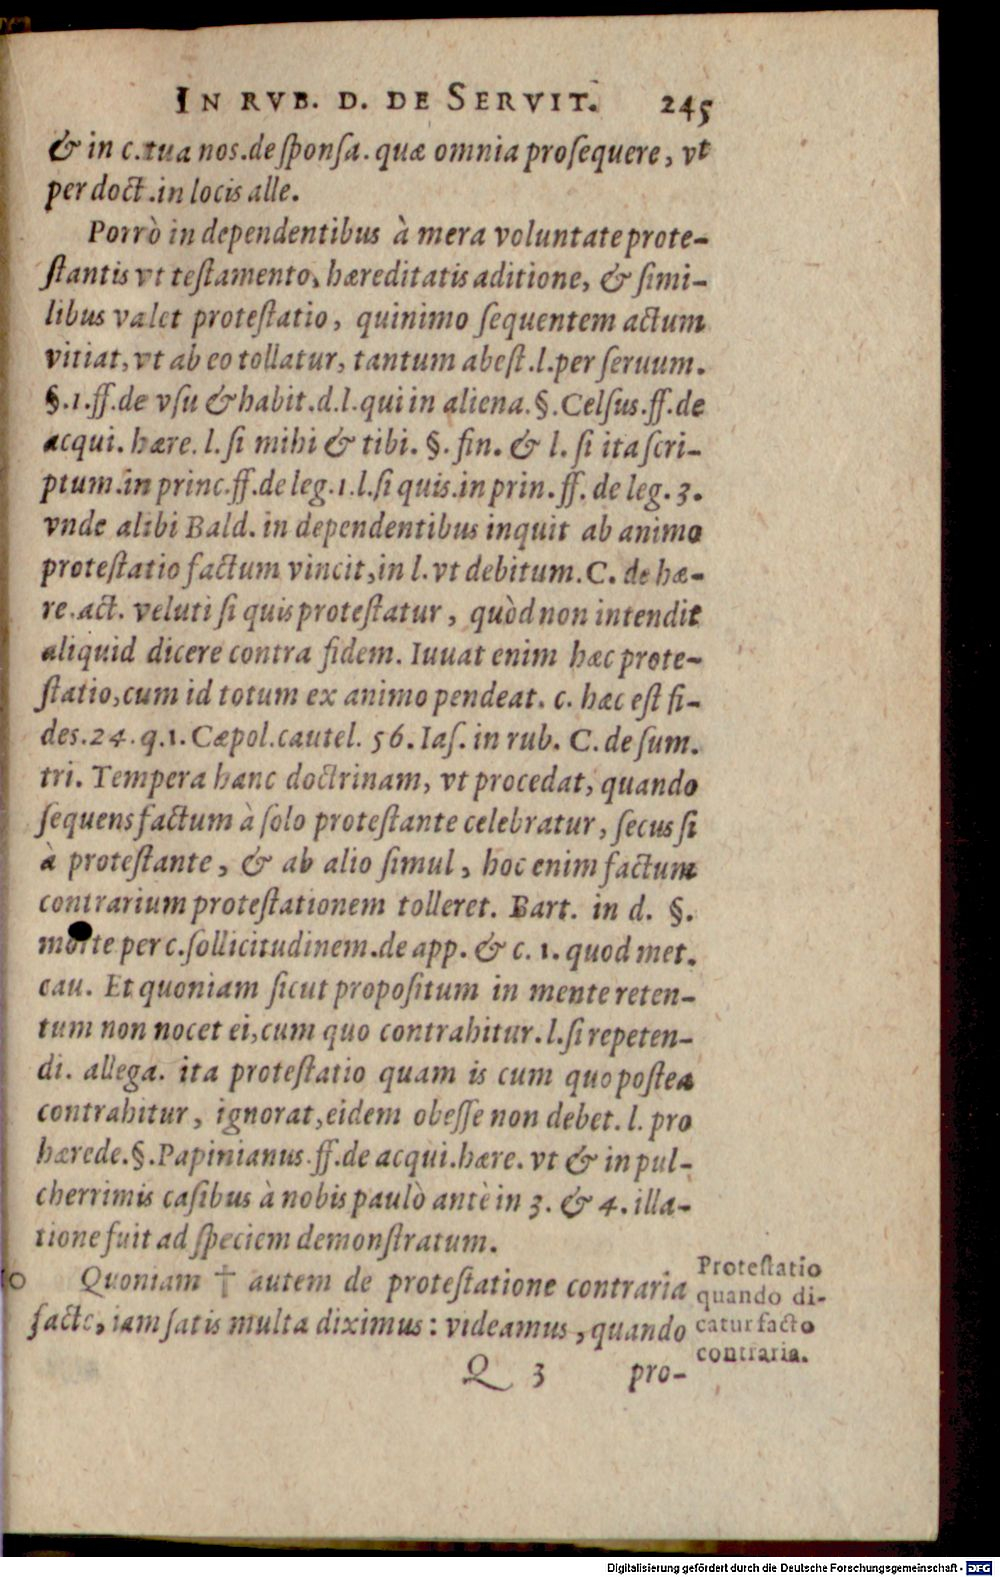 IN RVB. D. DE SERVIT. 245
& in c. tua nos. de ſponſa. quæ omnia proſequere, vt
per doct. in locis alle.
Porrò in dependentibus à mera voluntate prote-
ſtantis vt teſtamento, hæreditatis aditione, & ſimi-
libus valet proteſtatio, quinimo ſequentem actum
vitiat, vt ab eo tollatur, tantum abeſt. l. per ſeruum.
§. 1. ff. de vſu & habit. d. l. qui in aliena. §. Celſus. ff. de
acqui. hære. l. ſi mihi & tibi. §. fin. & l. ſi ita ſcri-
ptum. in princ. ff. de leg. 1. l. ſi quis. in prin. ff. de leg. 3.
vnde alibi Bald. in dependentibus inquit ab animo
proteſtatio factum vincit, in l. vt debitum. C. de hæ-
re. act. veluti ſi quis proteſtatur, quòd non intendit
aliquid dicere contra fidem. Iuuat enim hæc prote-
ſtatio, cum id totum ex animo pendeat. c. hæc eſt fi-
des. 24. q. 1. Cæpol. cautel. 56. Iaſ. in rub. C. de ſum.
tri. Tempera hanc doctrinam, vt procedat, quando
ſequens factum à ſolo proteſtante celebratur, ſecus ſi
à proteſtante, & ab alio ſimul, hoc enim factum
contrarium proteſtationem tolleret. Bart. in d. §.
morte per c. ſollicitudinem. de app. & c. 1. quod met.
cau. Et quoniam ſicut propoſitum in mente reten-
tum non nocet ei, cum quo contrahitur. l. ſi repeten-
di. allega. ita proteſtatio quam is cum quo poſtea
contrahitur, ignorat, eidem obeſſe non debet. l. pro
hærede. §. Papinianus. ff. de acqui. hære. vt & in pul-
cherrimis caſibus à nobis paulò antè in 3. & 4. illa-
tione fuit ad ſpeciem demonſtratum.
Quoniam † autem de proteſtatione contraria
facto, iam ſatis multa diximus: videamus, quando
Proteſtatio
quando di-
catur facto
contraria.
Q 3 pro-
Digitalisierung gefördert durch die Deutsche Forschungsgemeinschaft - DFG